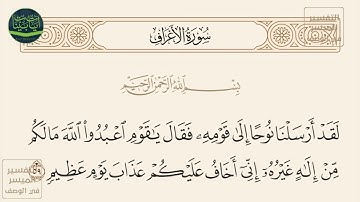 سُورَةُ الأَعْرَافِ
بِسْمِ اللَّهِ الرَّحْمَٰنِ الرَّحِيمِ
لَقَدْ أَرْسَلْنَا نُوحًا إِلَىٰ قَوْمِهِۦ فَقَالَ يَٰقَوْمِ ٱعْبُدُوا۟ ٱللَّهَ مَا لَكُم
مِّنْ إِلَٰهٍ غَيْرُهُۥٓ إِنِّىٓ أَخَافُ عَلَيْكُمْ عَذَابَ يَوْمٍ عَظِيمٍ ٥٩
التفسير
الميسر
في الوصف
التفسير
الميسر
في الوصف